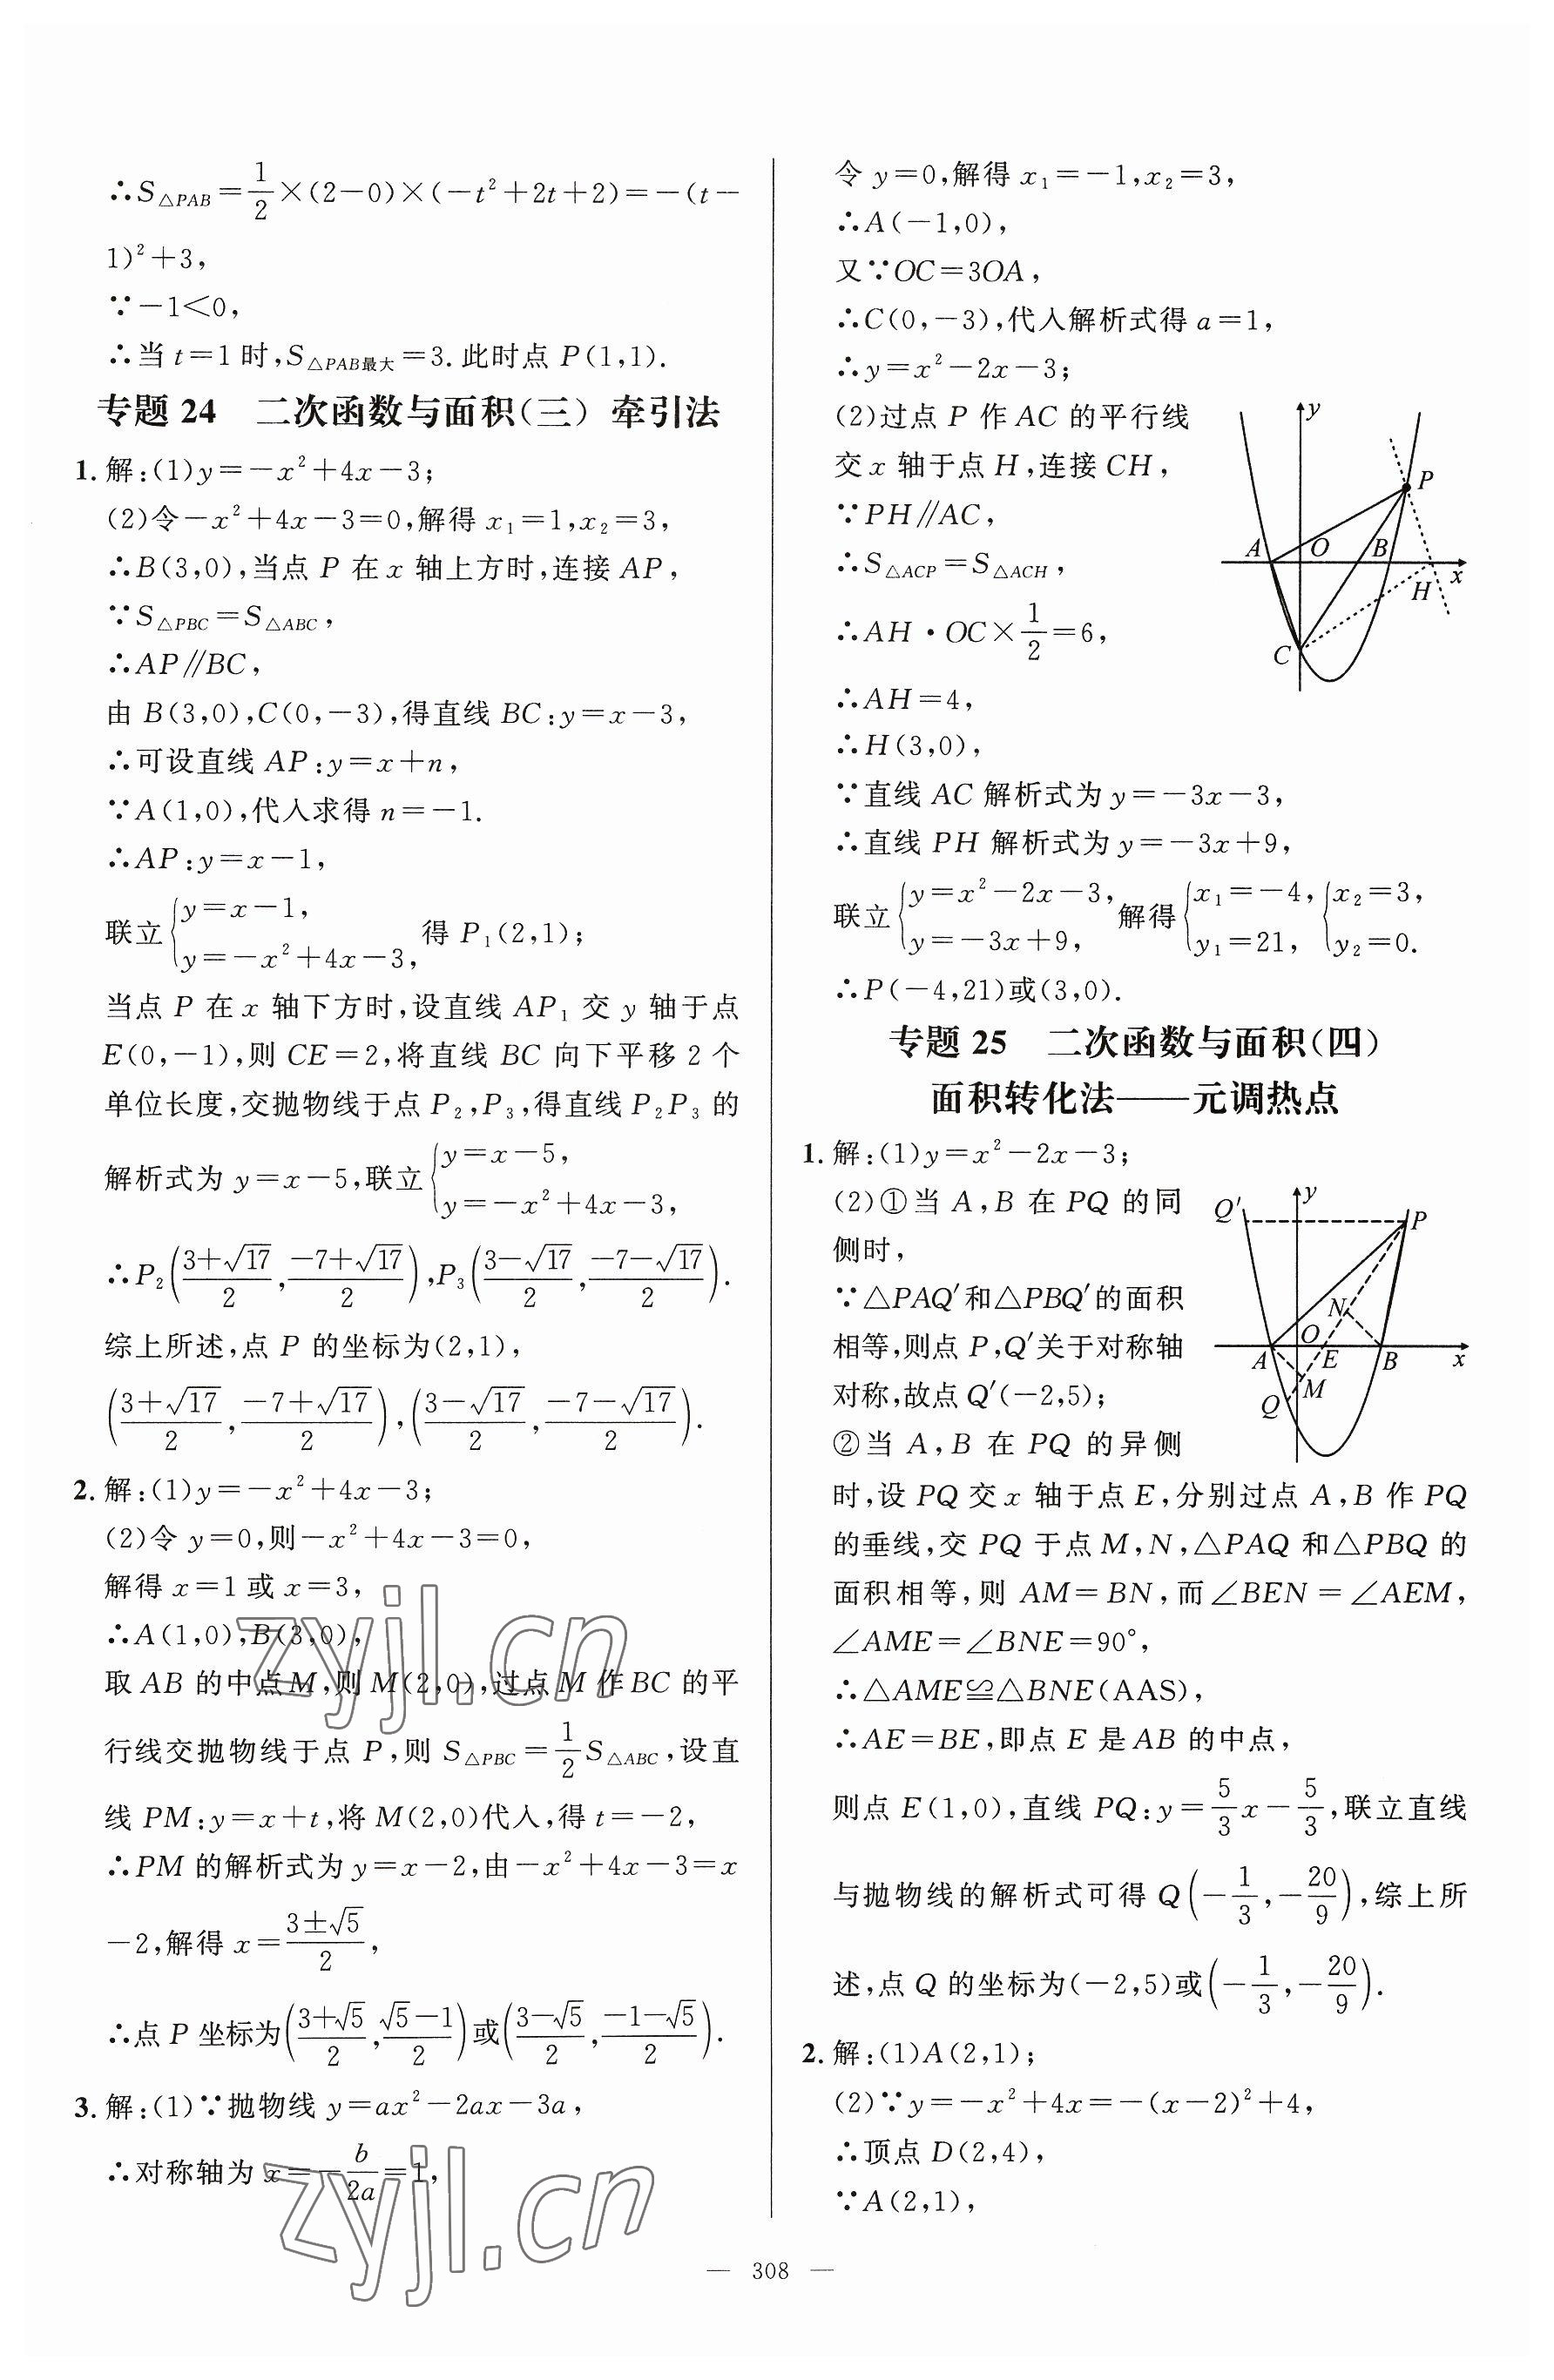 ∴S△PAB=1/2×(2-0)×(-t²+2t+2)=-(t-
1)²+3,
∵-1<0,
∴当 t=1 时,S△PAB最大=3.此时点 P(1,1).
专题 24 二次函数与面积(三) 牵引法
1.解:(1)y=-x²+4x-3;
(2)令-x²+4x-3=0,解得 x₁=1,x₂=3,
∴B(3,0),当点 P 在 x 轴上方时,连接 AP,
∵S△PBC=S△ABC,
∴AP∥BC,
由 B(3,0),C(0,-3),得直线 BC:y=x-3,
∴可设直线 AP:y=x+n,
∵A(1,0),代入求得 n=-1.
∴AP:y=x-1,
联立{y=x-1, y=-x²+4x-3, 得 P₁(2,1);
当点 P 在 x 轴下方时,设直线 AP₁ 交 y 轴于点
E(0,-1),则 CE=2,将直线 BC 向下平移 2 个
单位长度,交抛物线于点 P₂,P₃,得直线 P₂P₃ 的
解析式为 y=x-5,联立{y=x-5, y=-x²+4x-3,
∴P₂((3+√17)/2,(-7+√17)/2),P₃((3-√17)/2,(-7-√17)/2).
综上所述,点 P 的坐标为(2,1),
((3+√17)/2,(-7+√17)/2),((3-√17)/2,(-7-√17)/2).
2.解:(1)y=-x²+4x-3;
(2)令 y=0,则-x²+4x-3=0,
解得 x=1 或 x=3,
∴A(1,0),B(3,0),
取 AB 的中点 M,则 M(2,0),过点 M 作 BC 的平
行线交抛物线于点 P,则 S△PBC=1/2S△ABC,设直
线 PM:y=x+t,将 M(2,0)代入,得 t=-2,
∴PM 的解析式为 y=x-2,由-x²+4x-3=x
-2,解得 x=(3±√5)/2,
∴点 P 坐标为((3+√5)/2,(√5-1)/2)或((3-√5)/2,(-1-√5)/2).
3.解:(1)∵抛物线 y=ax²-2ax-3a,
∴对称轴为 x=-b/2a=1,
令 y=0,解得 x₁=-1,x₂=3,
∴A(-1,0),
又∵OC=3OA,
∴C(0,-3),代入解析式得 a=1,
∴y=x²-2x-3;
(2)过点 P 作 AC 的平行线
交 x 轴于点 H,连接 CH,
∵PH∥AC,
∴S△ACP=S△ACH,
∴AH·OC×1/2=6,
∴AH=4,
∴H(3,0),
∵直线 AC 解析式为 y=-3x-3,
∴直线 PH 解析式为 y=-3x+9,
联立{y=x²-2x-3, y=-3x+9, 解得{x₁=-4, y₁=21, {x₂=3, y₂=0.
∴P(-4,21)或(3,0).
y
P
A
O
B
x
H
C
专题 25 二次函数与面积(四)
面积转化法——元调热点
1.解:(1)y=x²-2x-3;
(2)①当 A,B 在 PQ 的同
侧时,
∵△PAQ′和△PBQ′的面积
相等,则点 P,Q′关于对称轴
对称,故点 Q′(-2,5);
②当 A,B 在 PQ 的异侧
时,设 PQ 交 x 轴于点 E,分别过点 A,B 作 PQ
的垂线,交 PQ 于点 M,N,△PAQ 和△PBQ 的
面积相等,则 AM=BN,而∠BEN=∠AEM,
∠AME=∠BNE=90°,
∴△AME≌△BNE(AAS),
∴AE=BE,即点 E 是 AB 的中点,
则点 E(1,0),直线 PQ:y=5/3x-5/3,联立直线
与抛物线的解析式可得 Q(-1/3,-20/9),综上所
述,点 Q 的坐标为(-2,5)或(-1/3,-20/9).
Q′
y
P
N
O
A
E
B
x
Q
M
2.解:(1)A(2,1);
(2)∵y=-x²+4x=-(x-2)²+4,
∴顶点 D(2,4),
∵A(2,1),
zyjl.cn
zyjl.cn
— 308 —